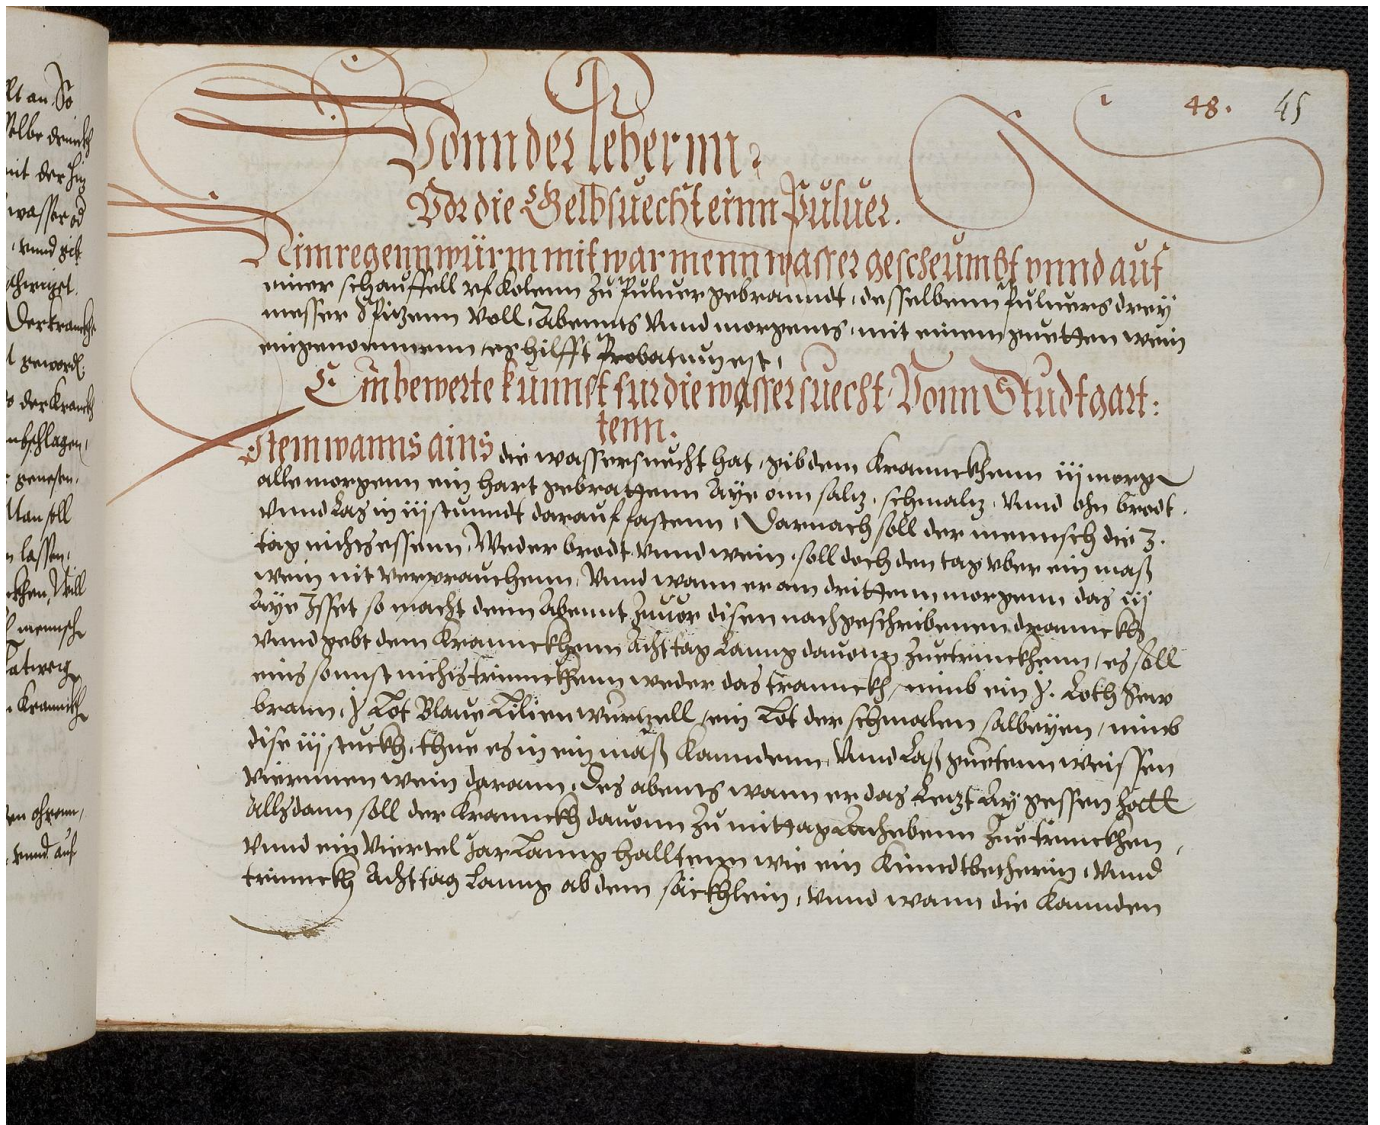 48. 45
Vonn der lebernn
Vor die Gelbsuecht einn Puluer.
Nim regennwürm mit warmenn wasser gescheumbt vnnd auf
einer schauffell vf Kolenn zu Puluer gebranndt, desselbenn Puluers drey
messer Spitzenn voll, Abennts vnnd morgents, mit einem guetten wein
eingenommenn, es hilfft Probatum est,
Ein bewerte kunnst fur die wassersuecht Vonn Studtgart:
tenn.
Item wanns ains die wassersuecht hat, gib dem Krannckhenn iij morge
alle morgenn ein hart gebrattenn Aye onn saltz, schmaltz, vnnd ohn brodt.
vnnd Las in iij stunndt darauf fastenn, Darnach soll der mennsch die 3.
tag nichts essenn, Weder brodt vnnd wein, soll doch den tag vber ein maß
wein nit verprauchenn, vnnd wann er am drittenn morgenn das iij
Aye Isset so macht denn Abennt zuuor disen nachgeschribenen dranneckh
vnnd gebt dem Krannckhenn Acht tag Lanng dauonn zuetrinnckhenn, es soll
eins sonnst nichts trinnckhenn weder das tranneckh, nimb ein Loth Sew
brann, Lot Blaue Lilien wurtzell, ein Lot der schmalen salbeyen, nimb
dise iij stuckh, thue es in ein maß Kanndenn, vnnd Laß guetenn weissen
viernnen wein darann, Des abents wann er das Letzt Ay gessen hatt
Allsdann soll der Kranneckh dauonn zu mittag Anhebenn zue trinnckhen,
vnnd ein viertel Jar Lanng halltenn wie ein Kindtbetherin, vnnd
trinneckh Acht tag Lanng ab dem säckhlein, vnnd wann die Kannden